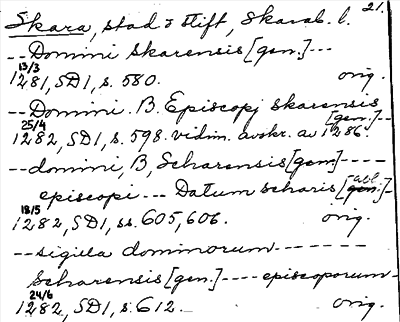 21.
Skara, stad o stift, Skarab. l.
-- Domini Skarensis [gen.] ---
13/3
1281, SD1, s. 580. orig.
-- Domini. B. Episcopj skarensis
[gen.] --
25/4
1282, SD1, s. 598. vidim. avskr. av 1286.
-- domini, B, Scharensis [gen.] ----
episcopi --- Datum scharis [gen.] abl.
18/5
1282, SD1, ss. 605, 606. orig.
-- sigilla dominorum -------
Scharensis [gen.] ---- episcoporum -
24/6
1282, SD1, s. 612. orig.